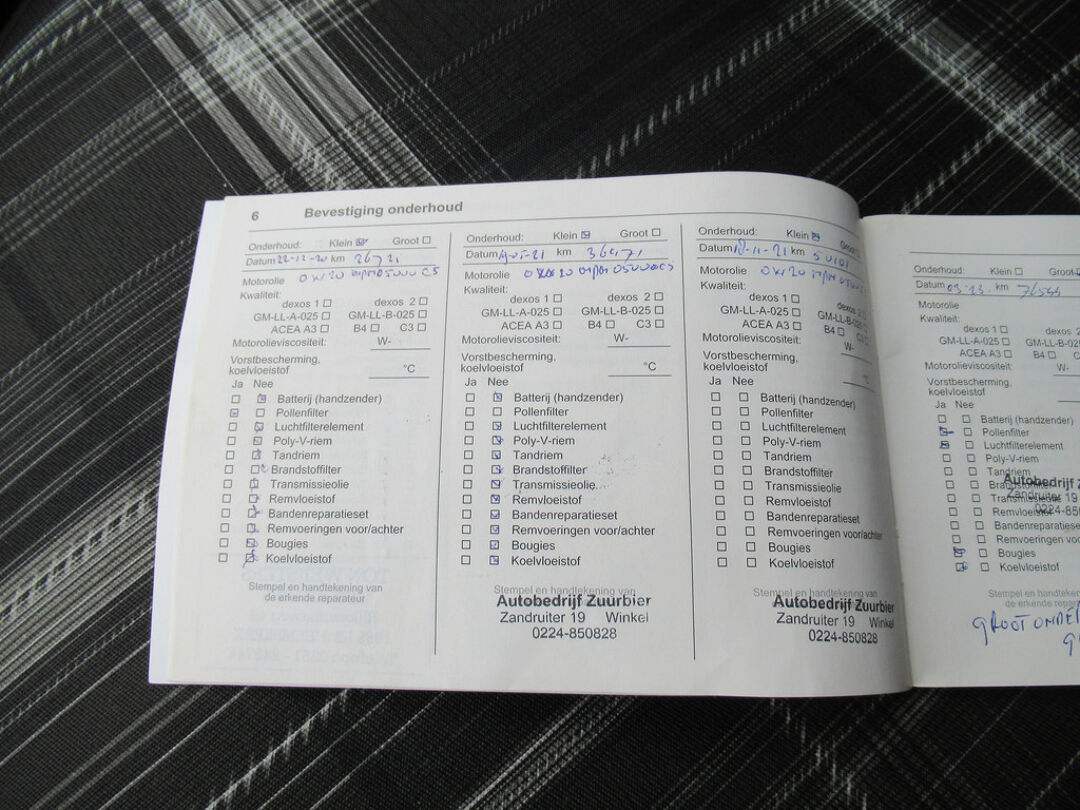 6 Bevestiging onderhoud
Onderhoud: Klein Groot
Datum 22-12-20 km 26721
Motorolie 0w20
Kwaliteit:
dexos 1 dexos 2
GM-LL-A-025 GM-LL-B-025
ACEA A3 B4 C3
Motorolieviscositeit: W-
Vorstbescherming,
koelvloeistof °C
Ja Nee
Batterij (handzender)
Pollenfilter
Luchtfilterelement
Poly-V-riem
Tandriem
Brandstoffilter
Transmissieolie
Remvloeistof
Bandenreparatieset
Remvoeringen voor/achter
Bougies
Koelvloeistof
Stempel en handtekening van
de erkende reparateur
Onderhoud: Klein Groot
Datum km 36471
Motorolie
Kwaliteit:
dexos 1 dexos 2
GM-LL-A-025 GM-LL-B-025
ACEA A3 B4 C3
Motorolieviscositeit: W-
Vorstbescherming,
koelvloeistof °C
Ja Nee
Batterij (handzender)
Pollenfilter
Luchtfilterelement
Poly-V-riem
Tandriem
Brandstoffilter
Transmissieolie
Remvloeistof
Bandenreparatieset
Remvoeringen voor/achter
Bougies
Koelvloeistof
Stempel en handtekening van
Autobedrijf Zuurbier
Zandruiter 19 Winkel
0224-850828
Onderhoud: Klein Groot
Datum km
Motorolie 0w20
Kwaliteit:
dexos 1 dexos 2
GM-LL-A-025 GM-LL-B-025
ACEA A3 B4
Motorolieviscositeit: W-
Vorstbescherming,
koelvloeistof °C
Ja Nee
Batterij (handzender)
Pollenfilter
Luchtfilterelement
Poly-V-riem
Tandriem
Brandstoffilter
Transmissieolie
Remvloeistof
Bandenreparatieset
Remvoeringen voor/achter
Bougies
Koelvloeistof
Stempel en handtekening van
Autobedrijf Zuurbier
Zandruiter 19 Winkel
0224-850828
Onderhoud: Klein Groot
Datum 03-23 km 76544
Motorolie
Kwaliteit:
dexos 1 dexos 2
GM-LL-A-025 GM-LL-B
ACEA A3 B4 C
Motorolieviscositeit: W-
Vorstbescherming,
koelvloeistof
Ja Nee
Batterij (handzender)
Pollenfilter
Luchtfilterelement
Poly-V-riem
Tandriem
Brandstoffilter
Autobedrijf Z
Transmissieolie
Zandruiter 19
Remvloeistof
0224-85
Bandenreparatieset
Remvoeringen vo
Bougies
Koelvloeistof
Stempel en handteken
de erkende repara
GROOT ONDE